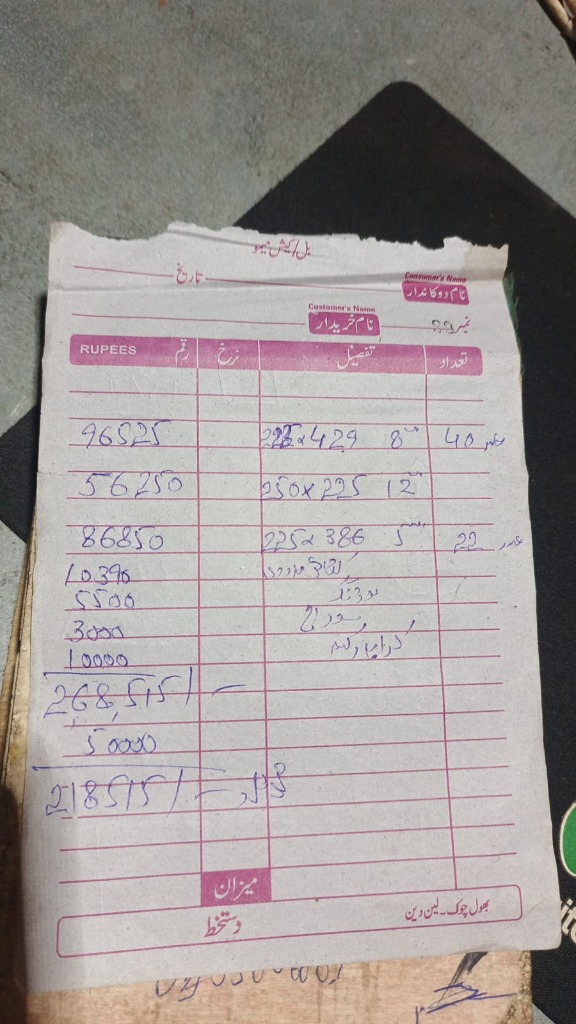 بل/کیش میمو
تاریخ
Consumer's Name
نام دوکاندار
Customer's Name
نام خریدار
نمبر
تعداد تفصیل نرخ رقم RUPEES
40 عدد 8" 225x429 96525
12" 250x225 56250
22 عدد 5" 225x386 86850
10390
5500
3000
کرایہ 10000
268,515/-
50000
218515/-
میزان
بھول چوک۔لین دین
دستخط